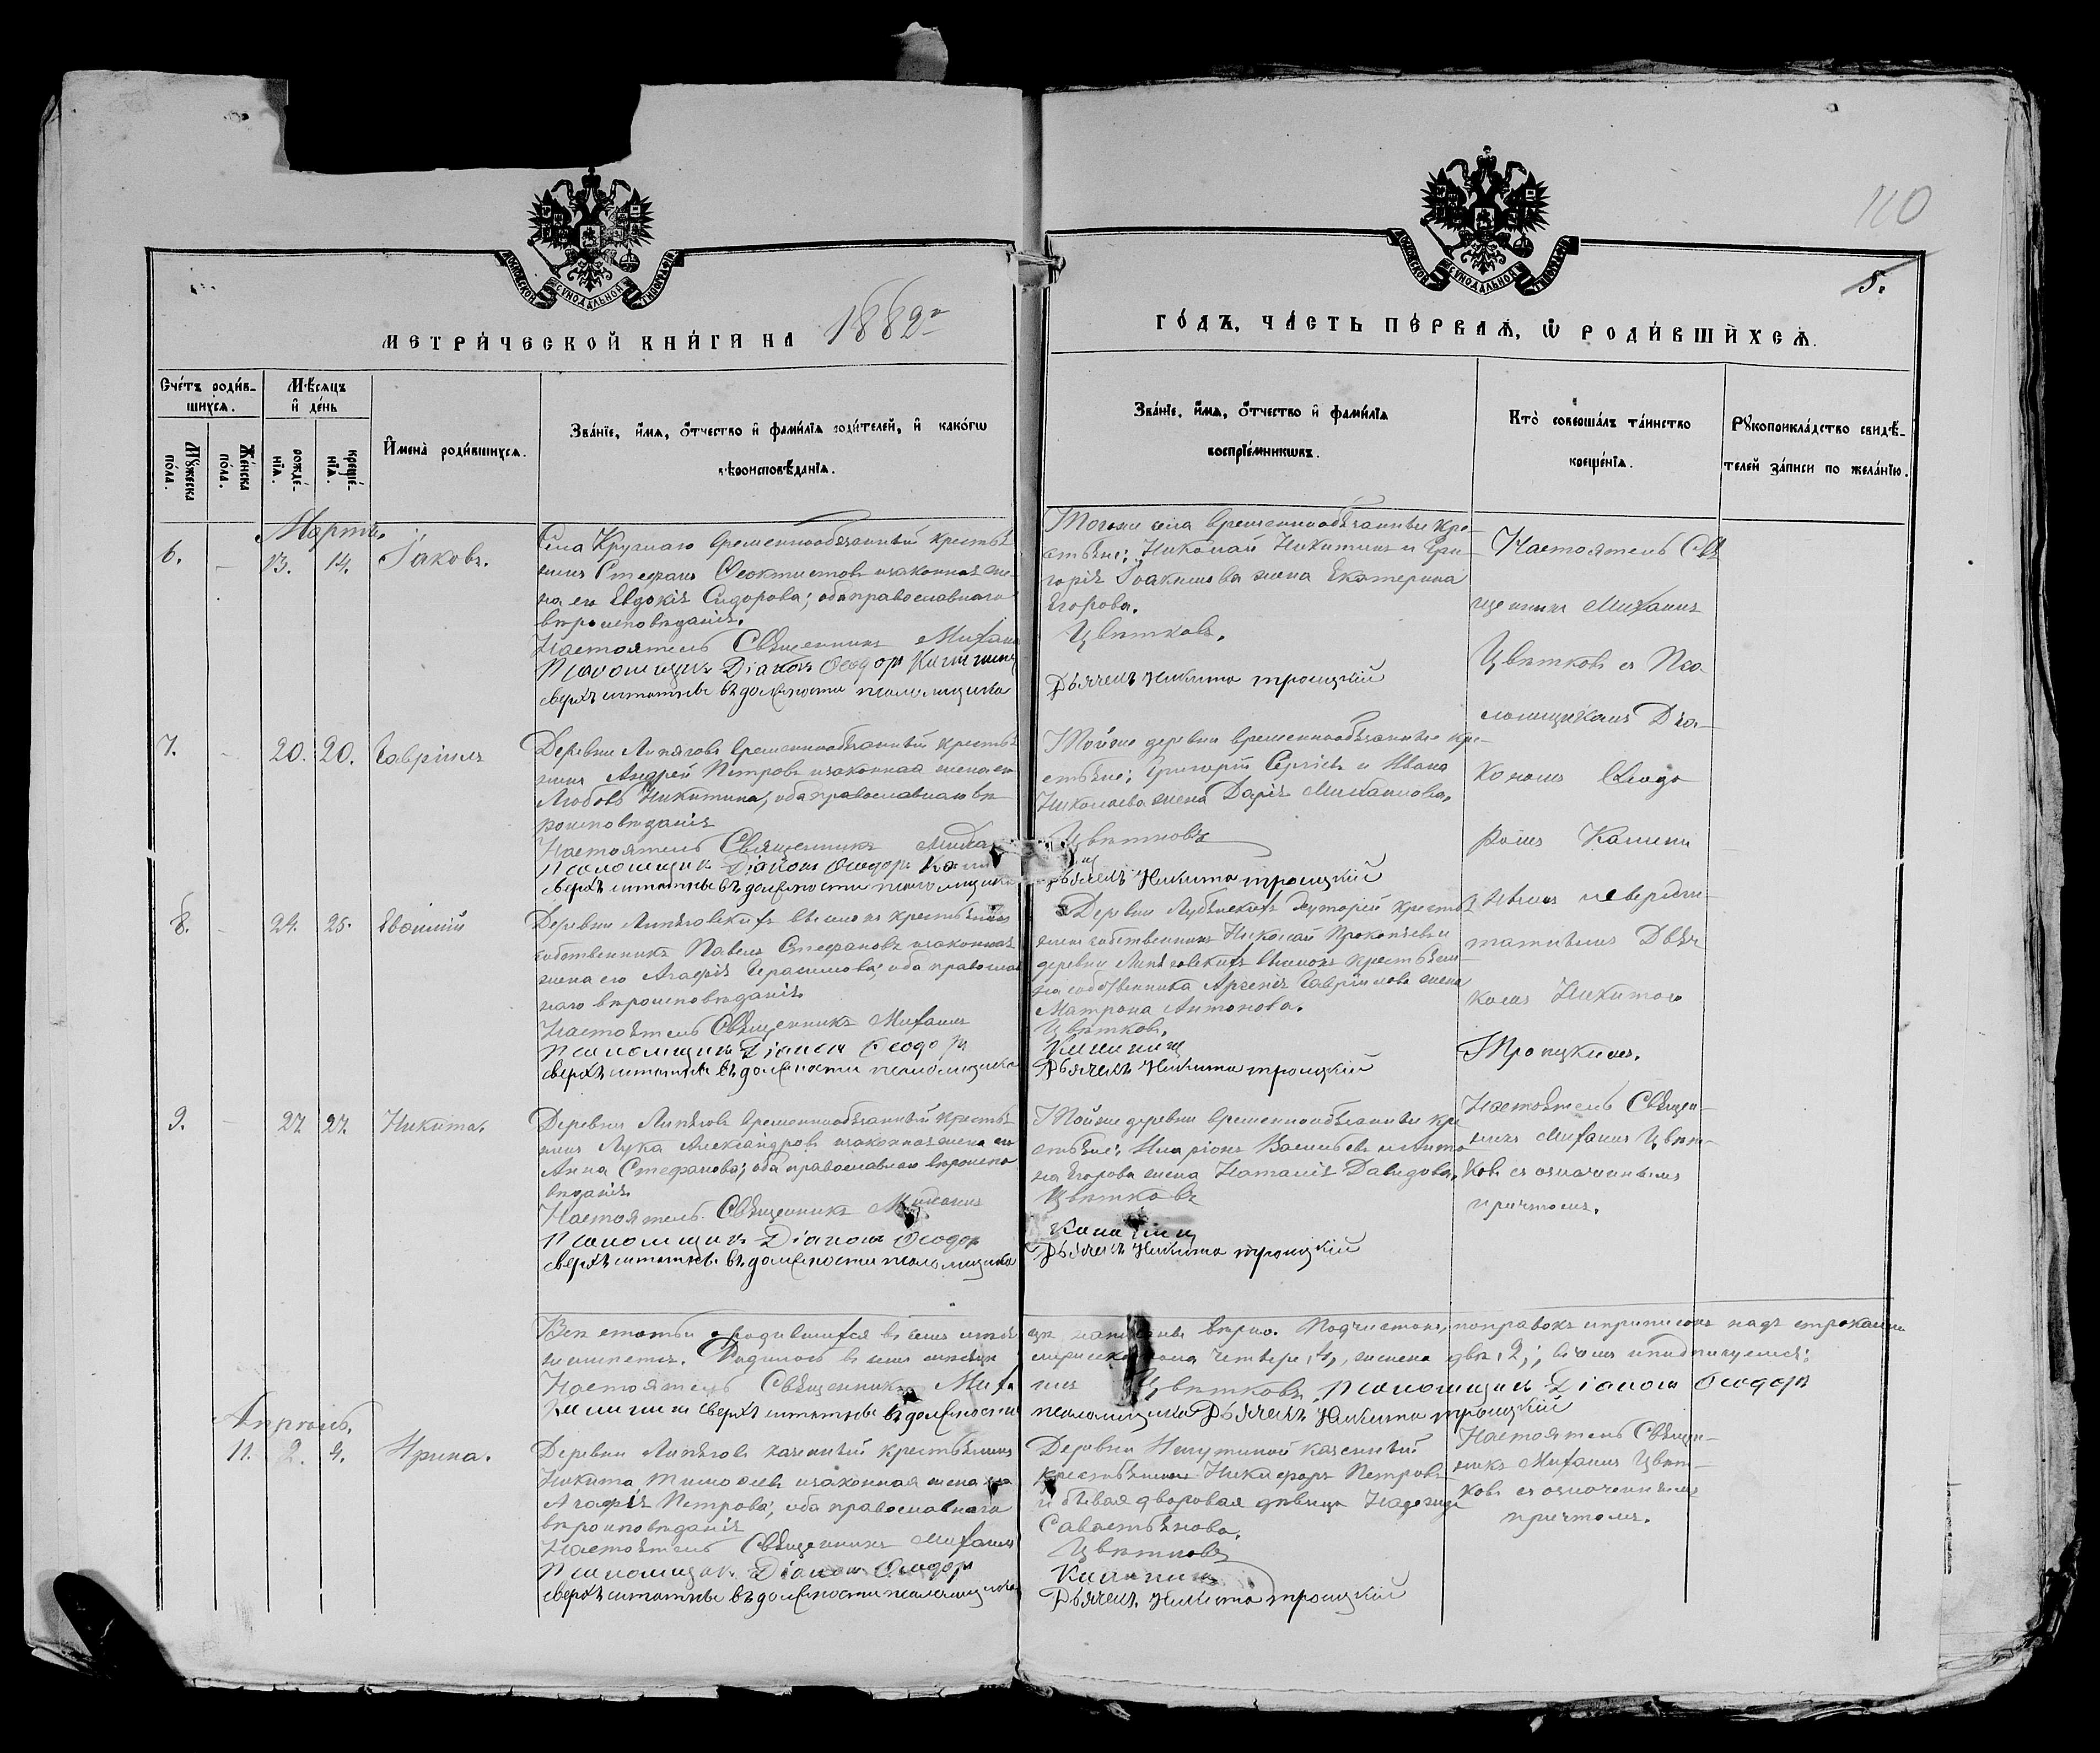 110
5.
МОСКОВСКОЙ СѴНОДАЛЬНОЙ ТИПОГРАФІИ
МОСКОВСКОЙ СѴНОДАЛЬНОЙ ТИПОГРАФІИ
МЕТРИ́ЧЕСКОЙ КНИ́ГИ НА 1882 г
ГО́ДЪ, ЧА́СТЬ ПЕ́РВАѦ, Ѽ РОДИ́ВШИ́ХСѦ.
Сче́тъ роди́в-
шихсѧ.
Мѣ́сѧцъ
и҆ де́нь
Мꙋ́жеска по́ла.
Же́нска по́ла.
рожде́-
нїѧ.
креще́-
нїѧ.
И҆мена̀ роди́вшихсѧ.
Зва́нїе, и҆́мѧ, ѻ҆́тчество и҆ фами́лїѧ роди́телей, и҆ како́гѡ
вѣроисповѣ́данїѧ.
Зва́нїе, и҆́мѧ, ѻ҆́тчество и҆ фами́лїѧ
воспрїе́мникѡвъ.
Кто̀ соверша́лъ та́инство
креще́нїѧ.
Рꙋкоприкла́дство свидѣ́-
телей за́писи по жела́нїю.
Мартъ.
6. - 13. 14. Іаковъ.
Села Круглаго временнообязанный крестья
нинъ Стефанъ Ѳеоктистовъ и законная же-
на его Евдокія Сидорова; оба православнаго
вѣроисповѣданія.
Настоятель Священникъ Михаил
Псаломщикъ Діаконъ Ѳеодоръ Калинин
сверхъштатный въ должности псаломщика
Того же села временнообязанные кре-
стьяне: Николай Никитинъ и Гри-
горія Іоакимова жена Екатерина
Егорова.
Цвѣтковъ.
Дьячекъ Никита Троицкій
Настоятель Свя
щенникъ Михаилъ
Цвѣтковъ съ Пса-
ломщикомъ Діа-
кономъ Ѳеодо
ромъ Калини
нымъ и сверхшт
татнымъ Дьяч
комъ Никитою
Троицкимъ.
7. - 20. 20. Гавріилъ
Деревни Липяговъ временнообязанный крестья
нинъ Андрей Петровъ и законная жена его
Любовь Никитина; оба православнаго вѣ-
роисповѣданія
Настоятель Священникъ Миха
Псаломщикъ Діаконъ Ѳеодоръ Кали
сверхъштатный въ должности псаломщика
Той же деревни временнообязанные кре-
стьяне: Григорій Сергіевъ и Ивана
Николаева жена Дарія Михаилова.
Цвѣтковъ
Дьячекъ Никита Троицкій
8. - 24. 25. Евѳимій
Деревни Липяговскихъ выселокъ крестьянинъ
собственникъ Павелъ Стефановъ и законная
жена его Агафія Герасимова; оба православ
наго вѣроисповѣданія.
Настоятель Священникъ Михаилъ
Псаломщикъ Діаконъ Ѳеодоръ
сверхъштатный въ должности псаломщика
Деревни Хуторей крестья
нинъ собственникъ Николай Прокопіевъ и
деревни Липяговскихъ выселокъ крестьяни-
на собственника Арсенія Гавріилова жена
Матрона Антонова.
Цвѣтковъ.
Калининъ
Дьячекъ Никита Троицкій
9. - 27. 27. Никита.
Деревни Липяговъ временнообязанный крестья
нинъ Лука Александровъ и законная жена его
Анна Стефанова; оба православнаго вѣроиспо
вѣданія.
Настоятель Священникъ Михаилъ
Псаломщикъ Діаконъ Ѳеодоръ
сверхъштатный въ должности псаломщика
Той же деревни временнообязанные кре
стьяне: Иларіонъ Васильевъ и Анто
на Егорова жена Наталія Давидова.
Цвѣтковъ
Калининъ
Дьячекъ Никита Троицкій
Настоятель Священ-
никъ Михаилъ Цвѣт-
ковъ съ означеннымъ
причтомъ.
Всѣ статьи о родившихся въ семъ мѣся цѣ написаны вѣрно. Подчистокъ, поправокъ и приписокъ надъ строками
не имѣется. Родилось въ семъ мѣсяцѣ мужеска пола четыре, 4, женска двѣ, 2,; въ чемъ и подписуемся:
Настоятель Священникъ Миха илъ Цвѣтковъ, Псаломщикъ Діаконъ Ѳеодоръ
Калининъ сверхъштатный въ должности псаломщика Дьячекъ Никита Троицкій
Апрѣль.
11. 2. 4. Ирина.
Деревни Липяговъ казенный крестьянинъ
Никита Тимоѳеевъ и законная жена его
Агафія Петрова; оба православнаго
вѣроисповѣданія
Настоятель Священникъ Михаилъ
Псаломщикъ Діаконъ Ѳеодоръ
сверхъштатный въ должности псаломщика
Деревни казенный
крестьянинъ Никифоръ Петровъ
и бывшая дворовая дѣвица Надежда
Савастьянова.
Цвѣтковъ
Калининъ
Дьячекъ Никита Троицкій
Настоятель Священ-
никъ Михаилъ Цвѣт-
ковъ съ означеннымъ
причтомъ.